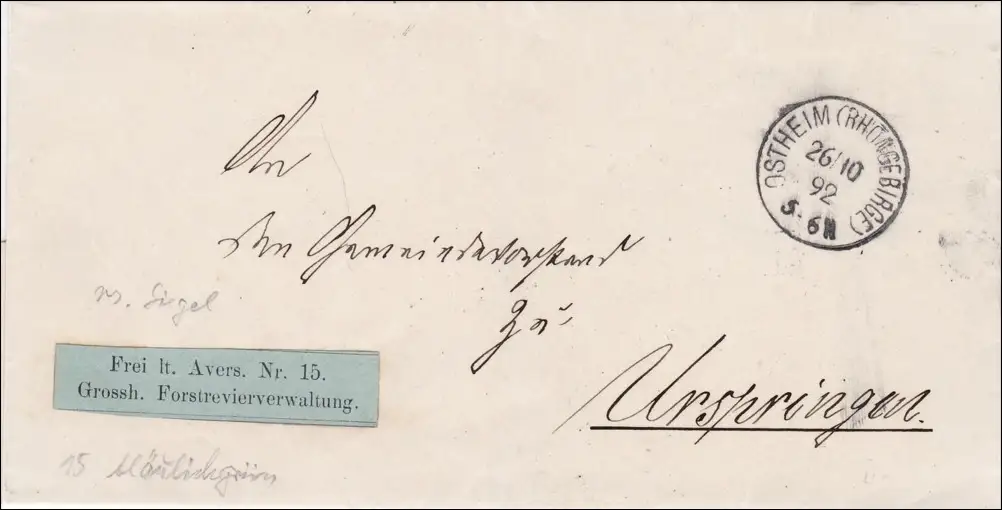 An
den Gemeindevorstand
zu
Urspringen.
OSTHEIM (RHÖNGEBIRGE)
26/10
92
5-6N
rs. Siegel
Frei lt. Avers. Nr. 15.
Grossh. Forstrevierverwaltung.
15 bläulichgrün